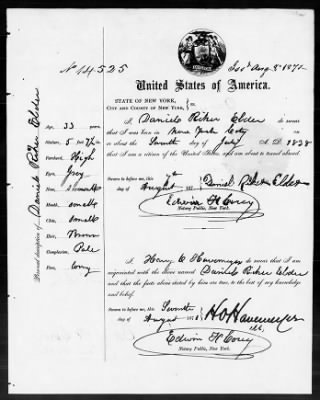 No 14525
Issd Aug 8 1871
United States of America.
STATE OF NEW YORK,
CITY AND COUNTY OF NEW YORK, } ss.
I, Daniels Riker Elder do swear
that I was born in New York City
about the Seventh day of July A. D. 1838
that I am a citizen of the United States, and am about to travel abroad.
Sworn to before me, this 7th
day of August 187
Edwin F Corey
Notary Public, New York.
I, Henry O Havemeyer do swear that I am
acquainted with the above named Daniels Riker Elder
and that the facts above stated by him are true, to the best of my knowledge
and belief.
Sworn to before me, this Seventh
day of August 187
H O Havemeyer
Edwin F Corey
Notary Public, New York.
Personal description of Daniels Riker Elder
Age, 33 years
Stature, 5 feet 7½ in
Forehead, High
Eyes, Grey
Nose,
Mouth, small
Chin, small
Hair, Brown
Complexion, Pale
Face,